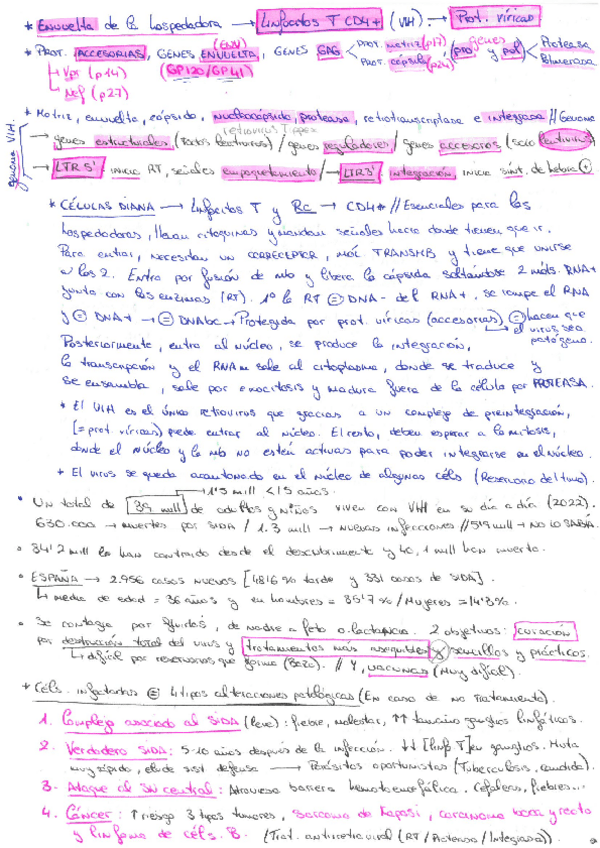 * Envuelta de la hospedadora → Linfocitos T CD4+ (VIH) → Prot. víricas
* PROT. ACCESORIAS, GENES ENVUELTA, GENES GAG < PROT. matriz (p17) PROT. cápsida (p24) genes (pro y pol) < Proteasa Polimerasa
(ENV)
↳ Vpr (p14) (GP120/GP41)
↳ Nef (p27)
* Matriz, envuelta, cápsido, nucleocápsido, proteasa, retrotranscriptasa e integrasa // Genoma
genoma VIH.
→ genes estructurales (todos lentivirus) / genes reguladores / genes accesorios (solo lentivirus)
→ LTR 5' inicia RT, señales empaquetamiento / → LTR 3' integración, inicia sínt. de hebra +
* CÉLULAS DIANA → Linfocitos T y → CD4+ // Esenciales para los
hospedadoras, llevan citoquinas y mandan señales hacia donde tienen que ir.
Para entrar, necesitan un CORRECEPTOR, MOL TRANSMB y tiene que unirse
a los 2. Entra por fusión de mb y libera la cápsida saltándose 2 mols. RNA+
junto con las enzimas (RT). 1º la RT ⊜ DNA- del RNA+, se rompe el RNA
y ⊜ DNA+ → ⊜ DNAbc → Protegida por prot. víricas (accesorias) ⊜ hacen que
el virus sea
patógeno.
Posteriormente, entra al núcleo, se produce la integración,
la transcripción y el RNAm sale al citoplasma, donde se traduce y
se ensambla, sale por exocitosis y madura fuera de la célula por PROTEASA.
* El VIH es el único retrovirus que gracias a un complejo de preintegración,
[= prot. víricas) puede entrar al núcleo. El resto, deben esperar a la mitosis,
donde el núcleo y la mb no estén activas para poder integrarse en el núcleo.
* El virus se queda acantonado en el núcleo de algunas céls (Reservorio del timo).
→ 1'5 mill <15 años.
• Un total de 39 mill de adultos y niños viven con VIH en su día a día (2022).
630.000 → muertes por SIDA / 1.3 mill → nuevas infecciones // → NO LO SABÍA.
• 84'2 mill lo han contraído desde el descubrimiento y 40,1 mill han muerto.
• ESPAÑA → 2.956 casos nuevos [48'6% tarde y 331 casos de SIDA].
↳ Media de edad = 36 años y en hombres = 85'7% / Mujeres = 14'3%.
• Se contagia por fluidos, de madre a feto o lactancia. 2 objetivos: curación
por destrucción total del virus y tratamientos más asequibles, sencillos y prácticos.
↳ difícil por reservorios que forma (Bazo). // Y, vacunas (Muy difícil).
* Céls. infectadas ⊜ 4 tipos alteraciones patológicas (En caso de no tratamiento).
1. Complejo asociado al SIDA (leve): fiebre, malestar, ↑↑ tamaño ganglios linfáticos.
2. Verdadero SIDA: 5-10 años después de la infección. ↓↓ [linf T] en ganglios. Muta
muy rápido, elude sist defensa → Parásitos oportunistas (Tuberculosis, candida).
3. Ataque al SN central: Atraviesa barrera hematoencefálica. Cefaleas, fiebres...
4. Cáncer: ↑ riesgo 3 tipos tumores, Sarcoma de Kaposi, carcinoma boca y recto
y linfoma de céls. B. (Trat. antirretroviral (RT / Proteasa / Integrasa)).